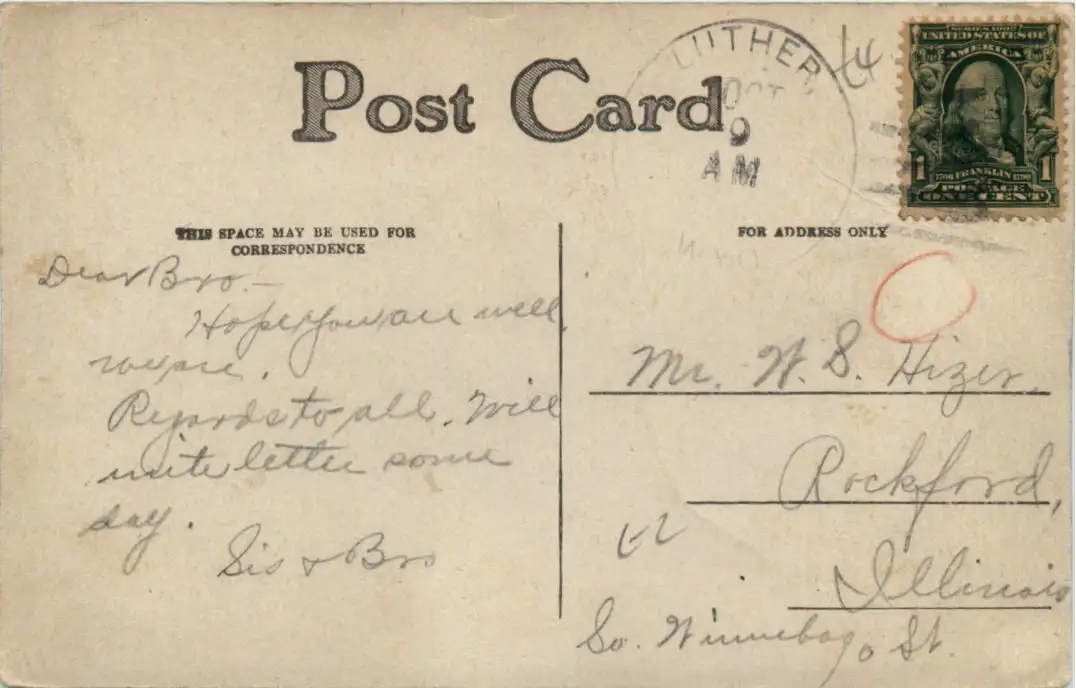 Post Card
LUTHER
OCT
9
AM
SERIES 1902
UNITED STATES OF
AMERICA
1 1706 FRANKLIN 1790 1
POSTAGE
ONE CENT
THIS SPACE MAY BE USED FOR
CORRESPONDENCE
FOR ADDRESS ONLY
Dear Bro.—
Hope you are well,
we are.
Regards to all. Will
write letter some
day.
Sis & Bro
Mr. W. S. Hizer.
Rockford,
Illinois
So. Winnebago St.